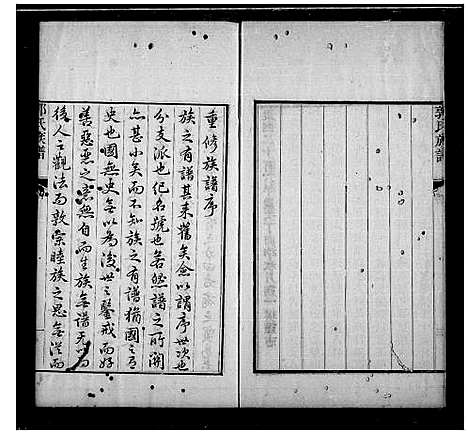 郭氏族譜
重修族譜序
族之有譜其来舊矣僉以謂序世次也
分支派也紀名號也若然譜之所關
亦甚小矣而不知族之有譜猶國之有
史也國無史無以為後世之鑒戒而好
善惡惡之念無自而生族無譜無以為
後人之觀法而敦宗睦族之思無從而
郭氏族譜